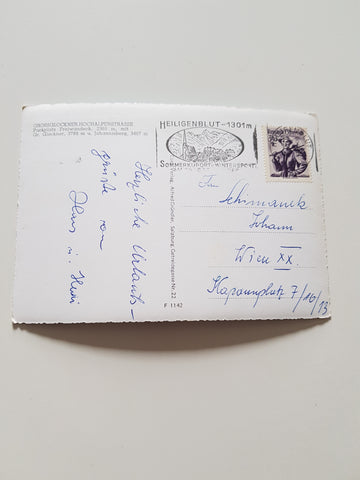 GROSSGLOCKNER-HOCHALPENSTRASSE
Parkplatz Freiwandeck, 2369 m, mit
Gr. Glockner, 3798 m u. Johannisberg, 3467 m
Herzliche Urlaubs-
grüße von
Hans u. Heri
Verlag Alfred Gründler, Salzburg, Getreidegasse Nr. 22
F 1142
HEILIGENBLUT - 1301m
SOMMERKURORT - WINTERSPORT
Fam
Schimanek
Johann
Wien XX.
Kapaunplatz 7/16/13